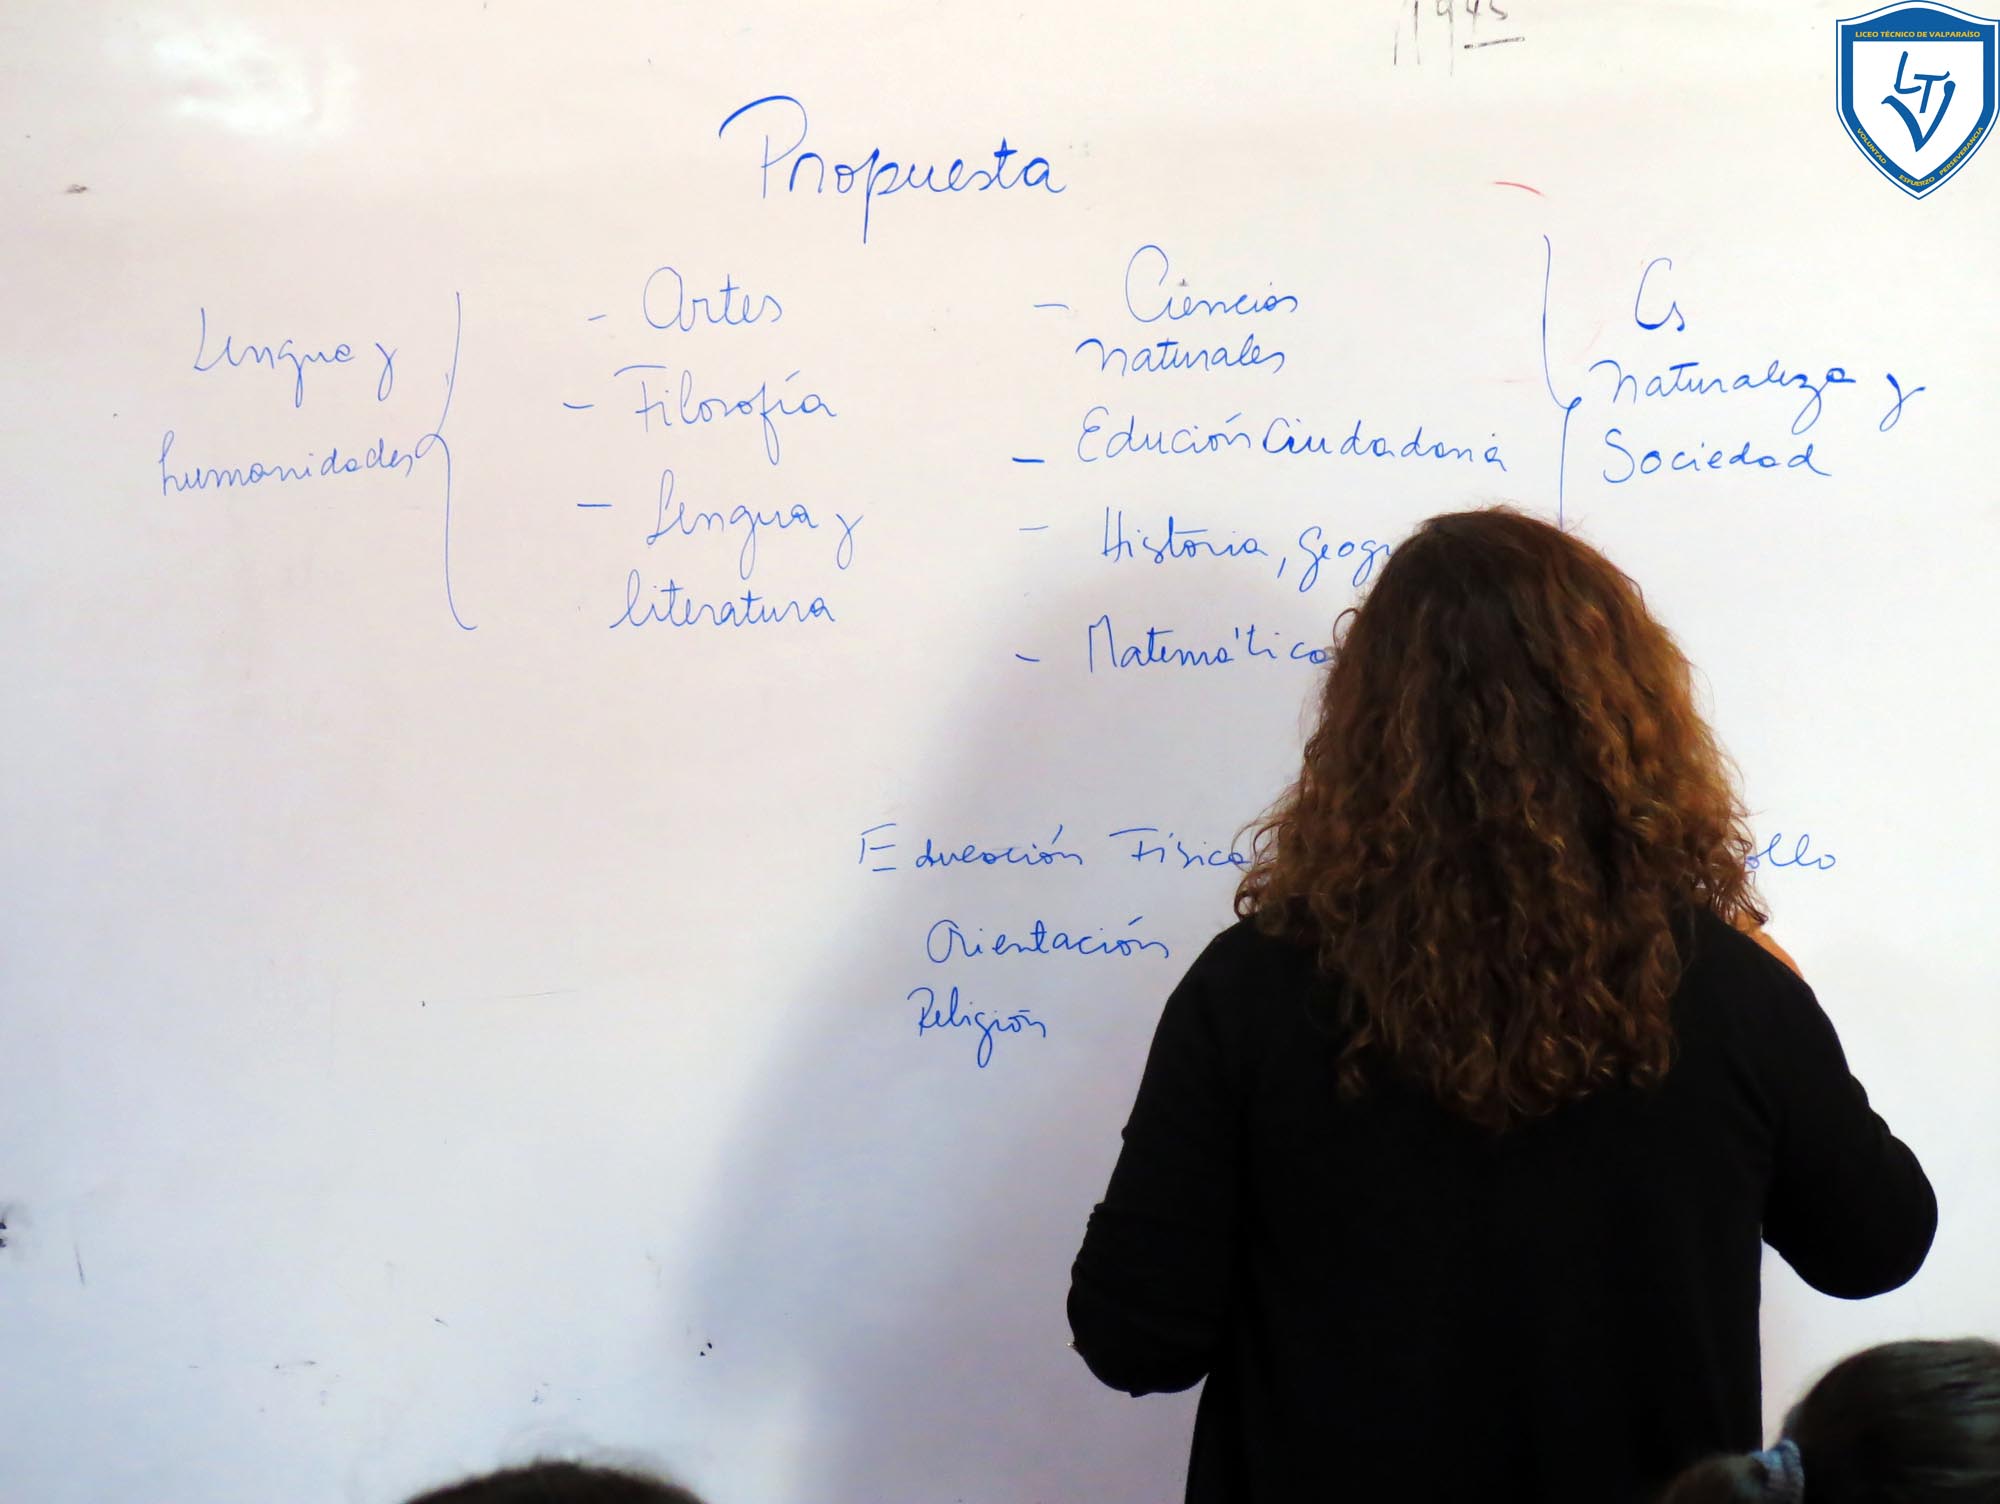 1945
LICEO TÉCNICO DE VALPARAÍSO
LTV
VOLUNTAD ESFUERZO PERSEVERANCIA
Propuesta
Lengua y
humanidades
- Artes
- Filosofía
- Lengua y
literatura
- Ciencias
naturales
- Edución Ciudadana
- Historia, geogr
- Matemática
Cs
Naturaleza y
Sociedad
Educación Física ollo
Orientación
Religión